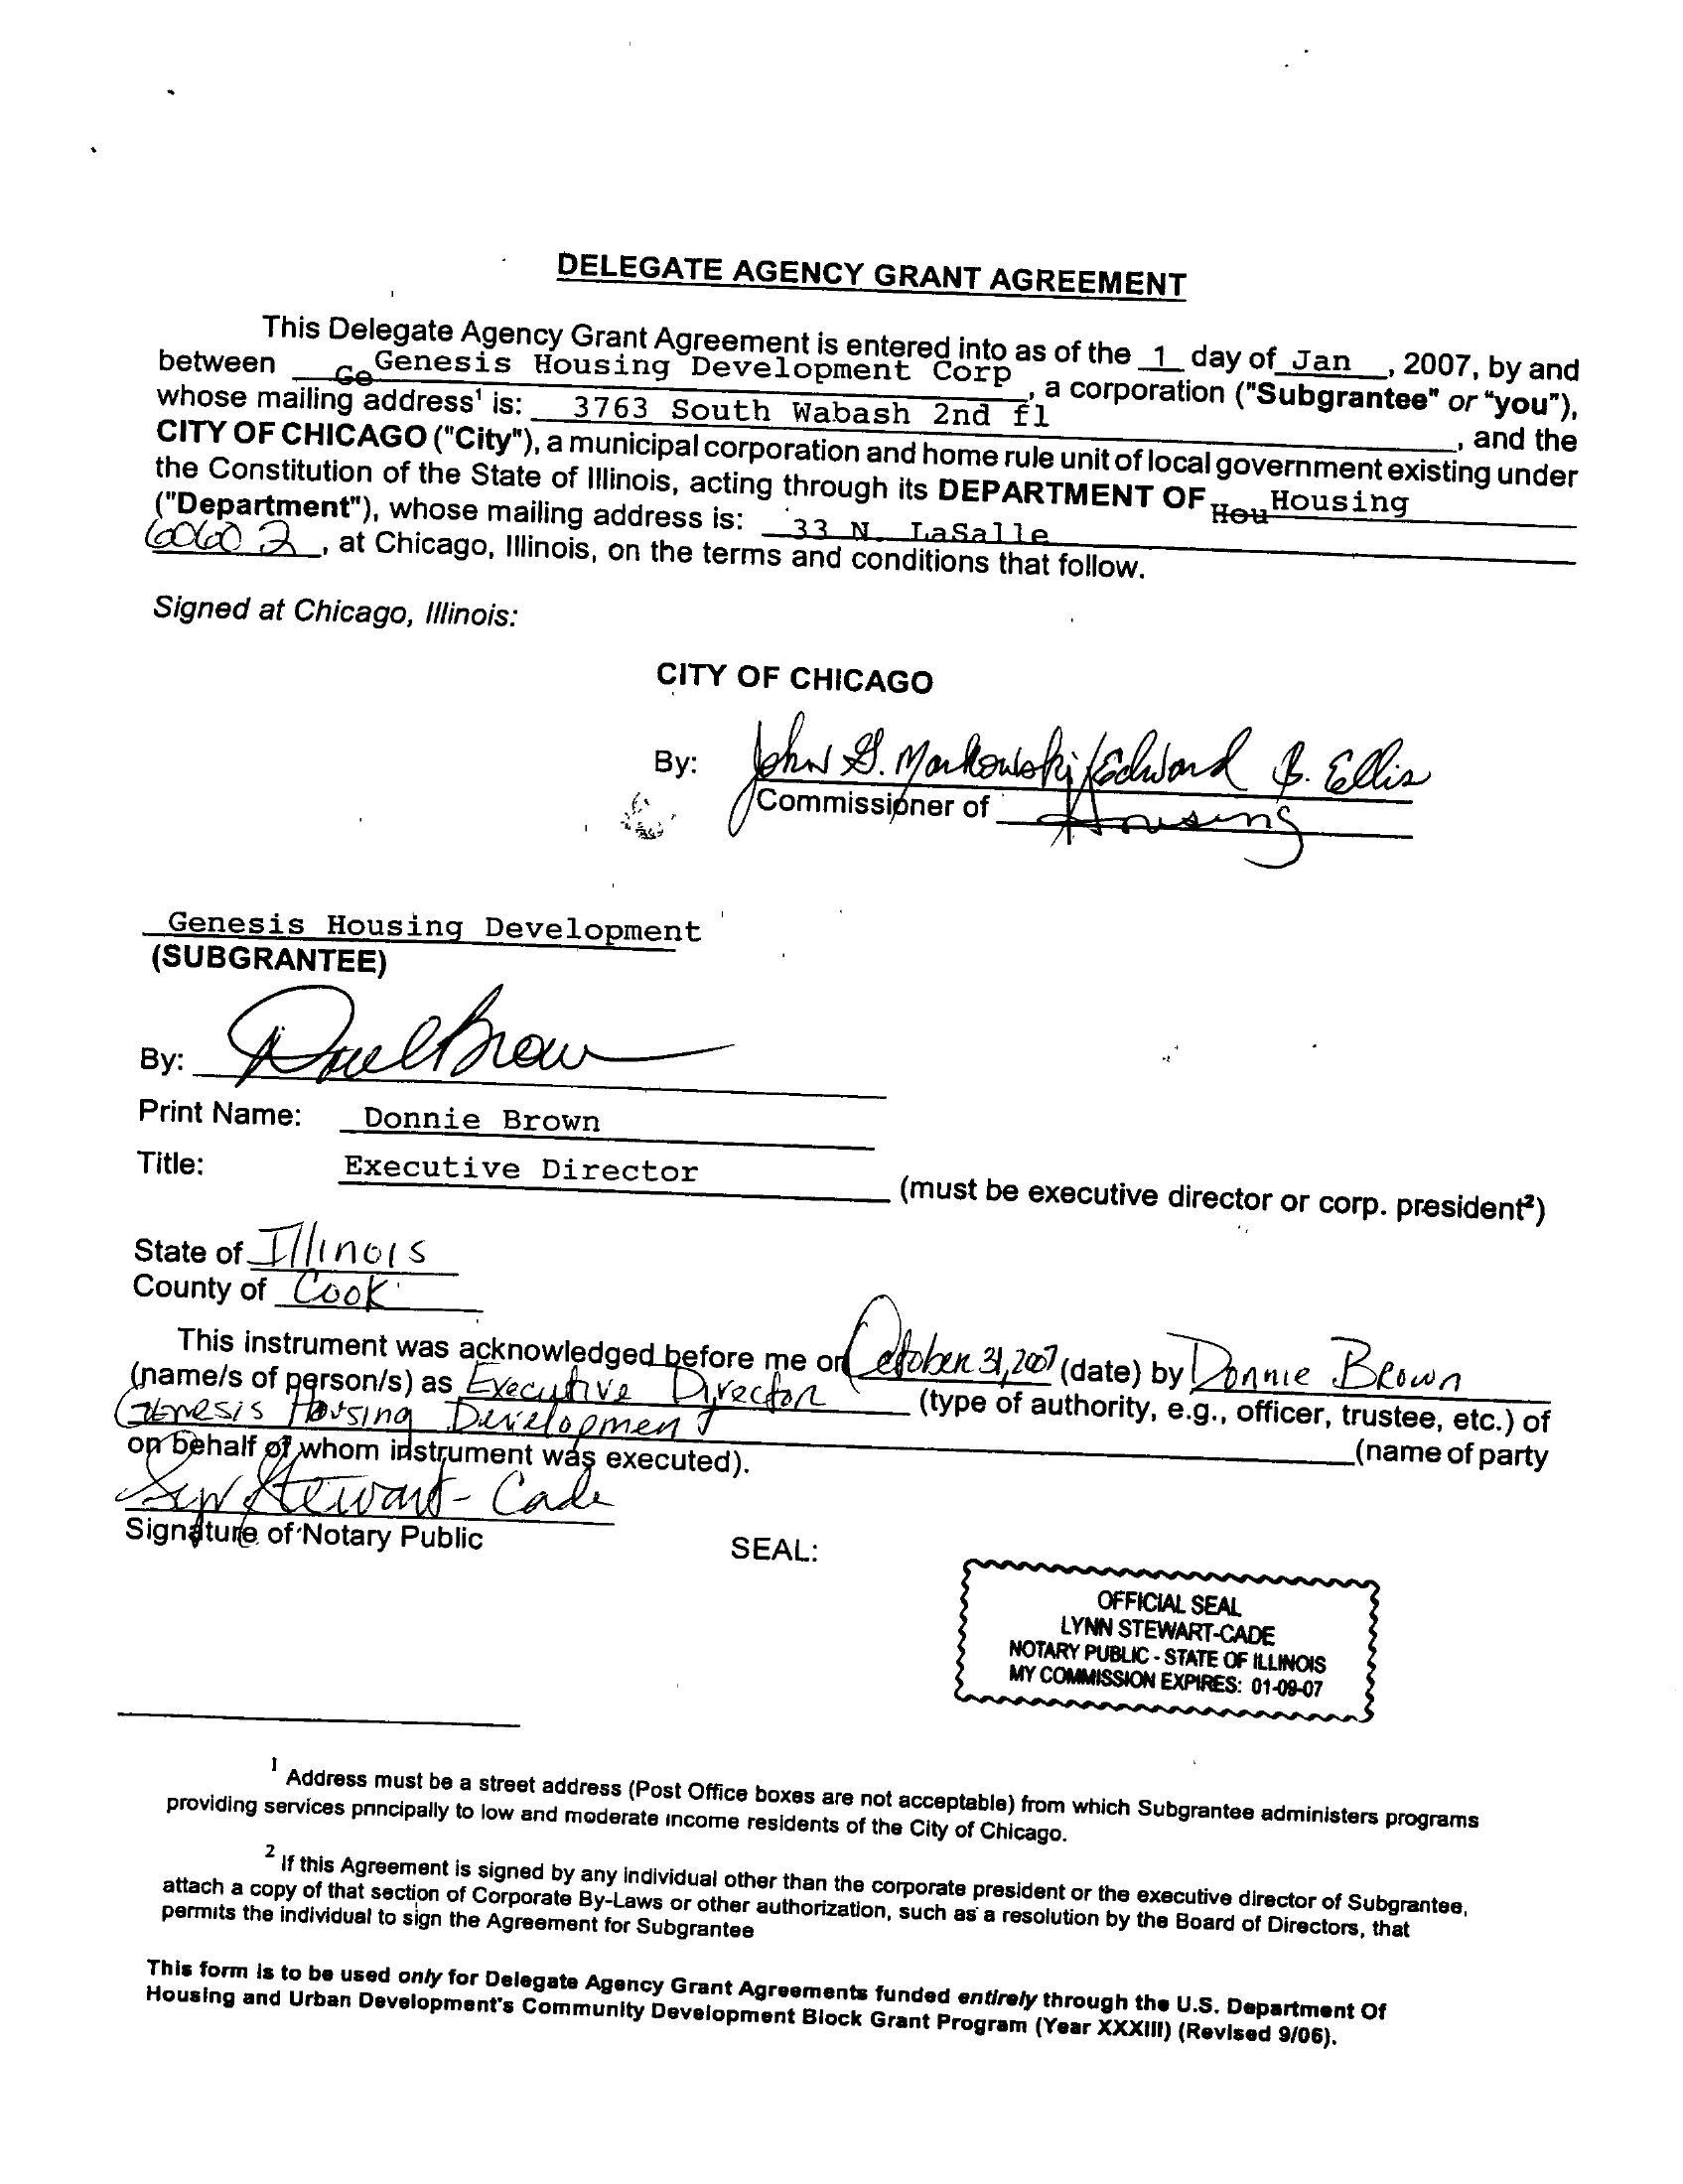 DELEGATE AGENCY GRANT AGREEMENT
This Delegate Agency Grant Agreement is entered into as of the 1 day of Jan, 2007, by and
between Ge Genesis Housing Development Corp, a corporation ("Subgrantee" or "you"),
whose mailing address¹ is: 3763 South Wabash 2nd fl, and the
CITY OF CHICAGO ("City"), a municipal corporation and home rule unit of local government existing under
the Constitution of the State of Illinois, acting through its DEPARTMENT OF Hou Housing
("Department"), whose mailing address is: 33 N. LaSalle
60602, at Chicago, Illinois, on the terms and conditions that follow.
Signed at Chicago, Illinois:
CITY OF CHICAGO
By: John G. Markowski/Edward B. Ellis
Commissioner of Housing
Genesis Housing Development
(SUBGRANTEE)
By: Brown
Print Name: Donnie Brown
Title: Executive Director (must be executive director or corp. president²)
State of Illinois
County of Cook
This instrument was acknowledged before me on October 31, 2007 (date) by Donnie Brown
(name/s of person/s) as Executive Director (type of authority, e.g., officer, trustee, etc.) of
Genesis Housing Development (name of party
on behalf of whom instrument was executed).
Stewart-Cade
Signature of Notary Public
SEAL:
OFFICIAL SEAL
LYNN STEWART-CADE
NOTARY PUBLIC - STATE OF ILLINOIS
MY COMMISSION EXPIRES: 01-09-07
¹ Address must be a street address (Post Office boxes are not acceptable) from which Subgrantee administers programs
providing services principally to low and moderate income residents of the City of Chicago.
² If this Agreement is signed by any individual other than the corporate president or the executive director of Subgrantee,
attach a copy of that section of Corporate By-Laws or other authorization, such as a resolution by the Board of Directors, that
permits the individual to sign the Agreement for Subgrantee
This form is to be used only for Delegate Agency Grant Agreements funded entirely through the U.S. Department Of
Housing and Urban Development's Community Development Block Grant Program (Year XXXIII) (Revised 9/06).